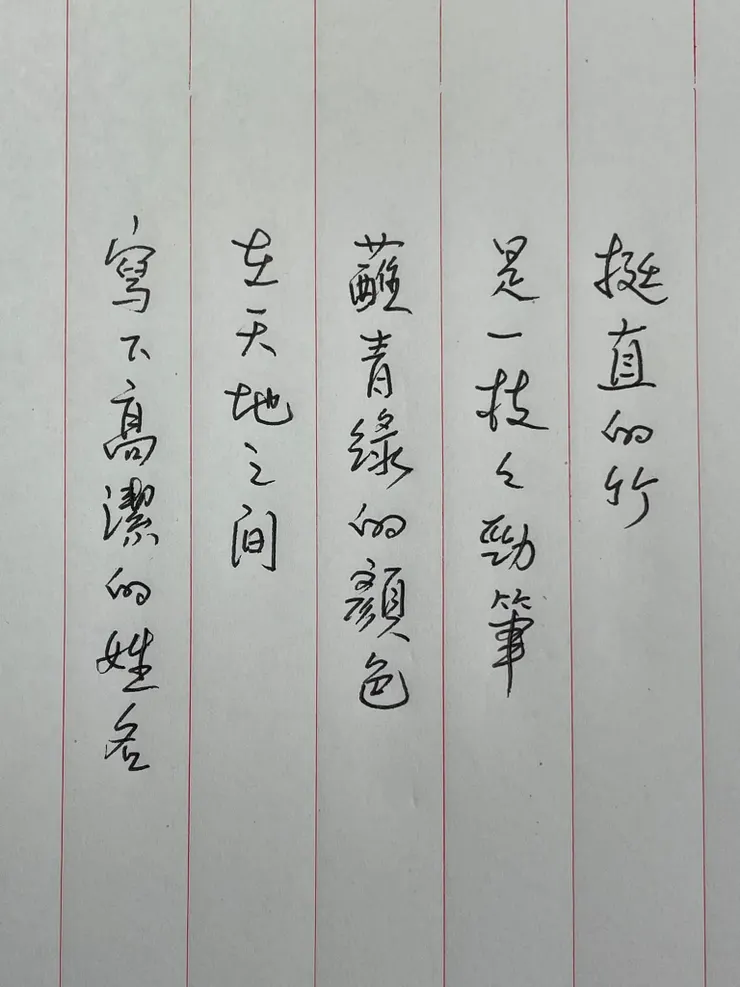 挺直的竹
是一枝々勁筆
蘸青綠的顏色
在天地之间
寫下高潔的姓名